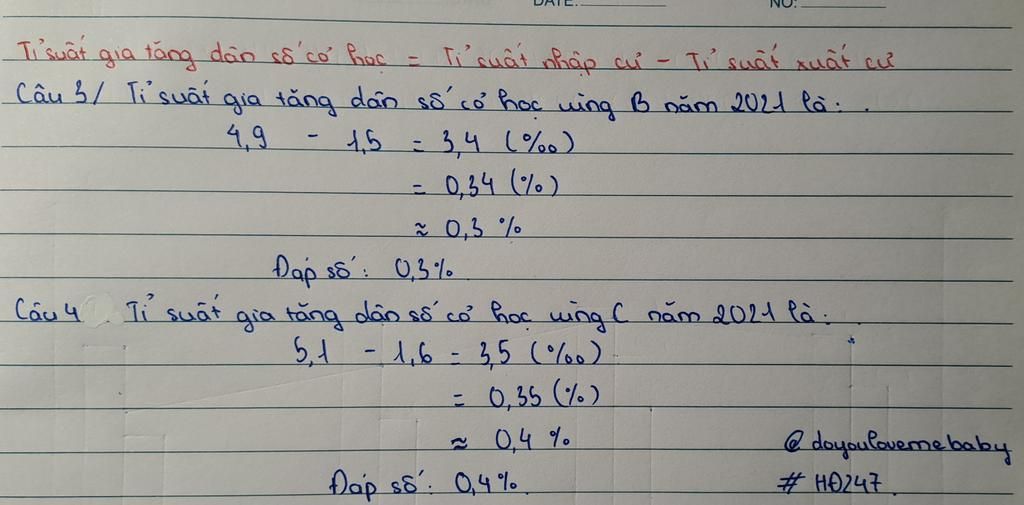 DATE: NO:
Tỉ suất gia tăng dân số cơ học = Tỉ suất nhập cư - Tỉ suất xuất cư
Câu 3/ Tỉ suất gia tăng dân số cơ học vùng B năm 2021 là:
4,9 - 1,5 = 3,4 (‰)
= 0,34 (%)
≈ 0,3 %
Đáp số: 0,3%
Câu 4 Tỉ suất gia tăng dân số cơ học vùng C năm 2021 là:
5,1 - 1,6 = 3,5 (‰)
= 0,35 (%)
≈ 0,4 %
@doyoulovemebaby
Đáp số: 0,4%
# HĐ247